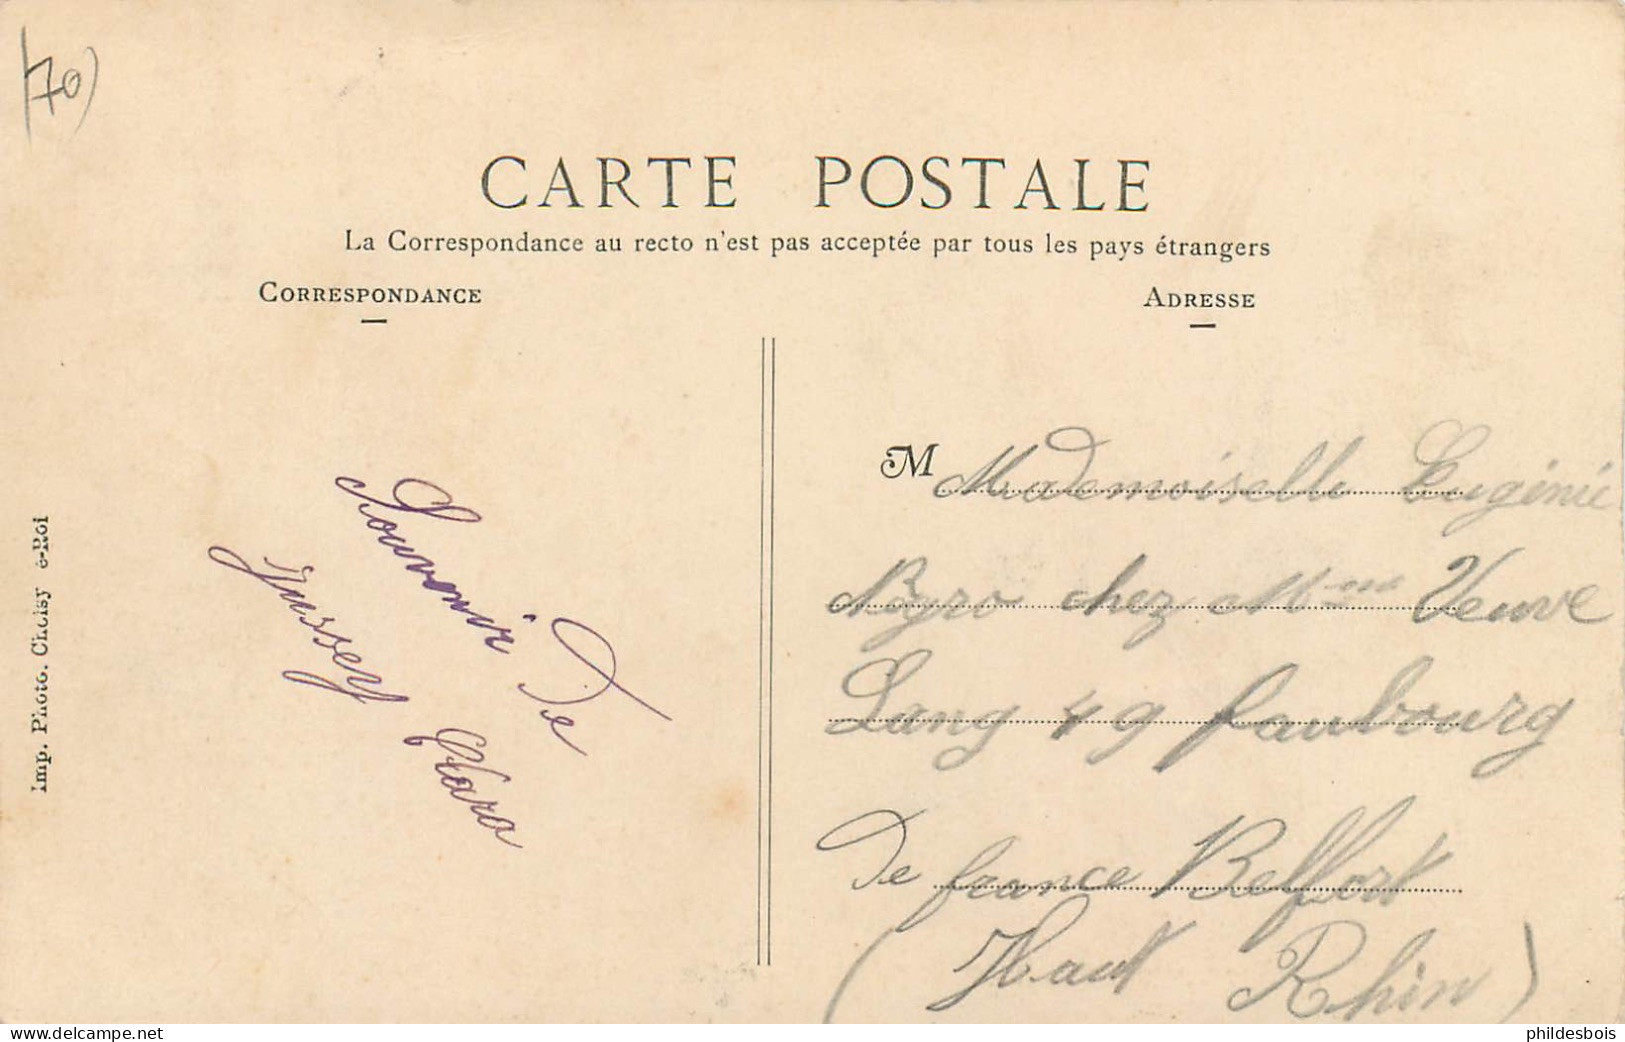 (70)
CARTE POSTALE
La Correspondance au recto n'est pas acceptée par tous les pays étrangers
CORRESPONDANCE
ADRESSE
Souvenir De
Jussey Clara
M Mademoiselle Eugénie
chez Mme Veuve
Lang 49 faubourg
De france Belfort
(Haut Rhin)
Imp. Photo. Choisy
delcampe.net
phildesbois